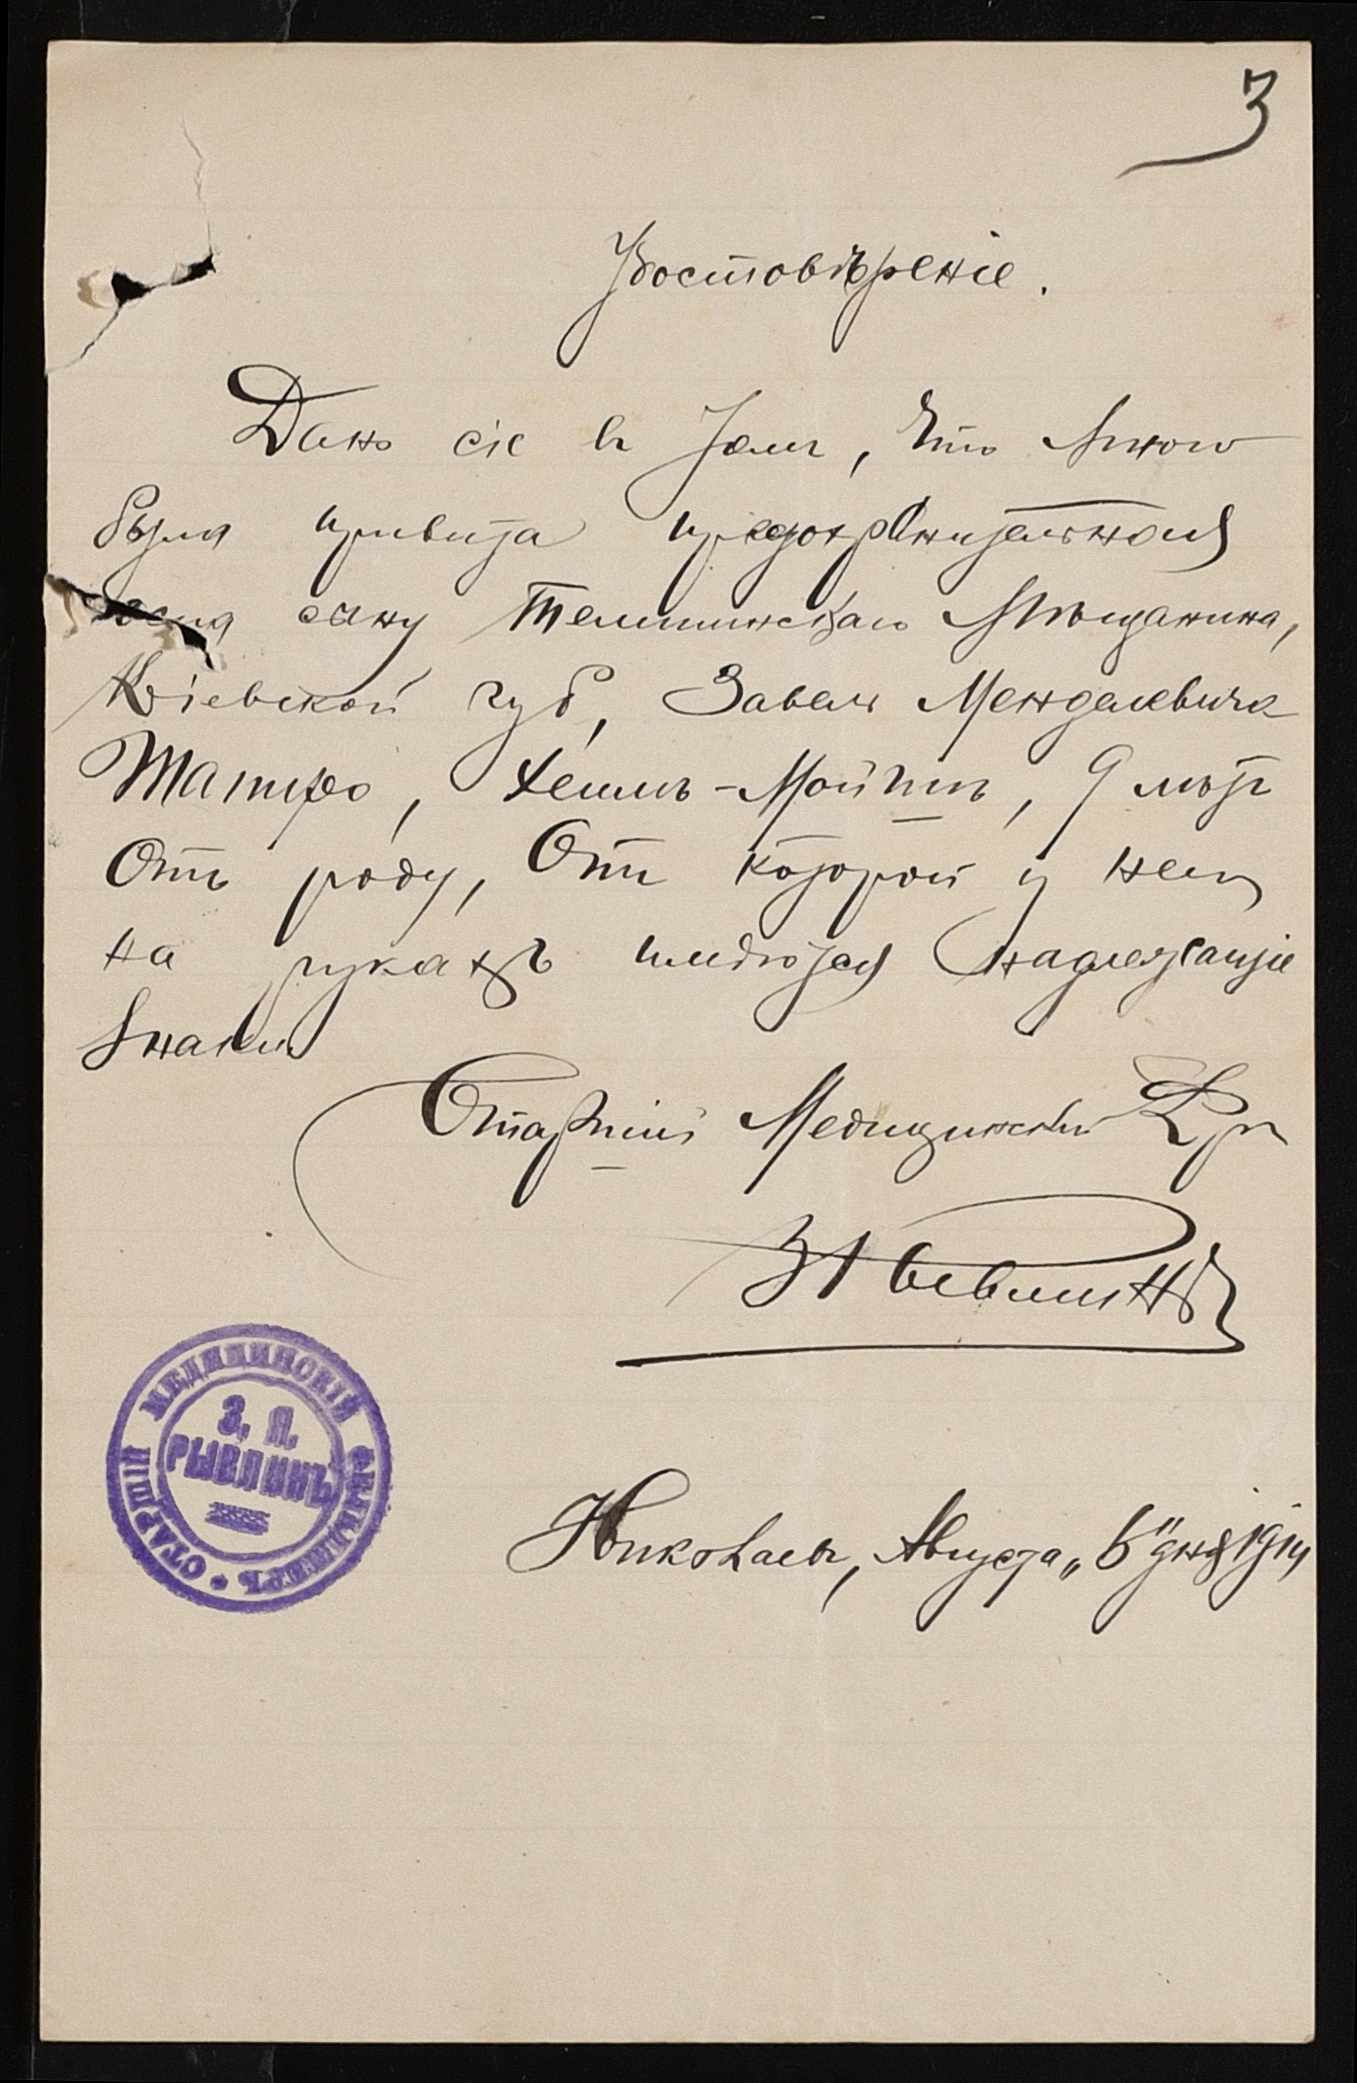 3
Удостовѣреніе.
Дано сіе въ томъ, что мною
была привита предохранительная
оспа сыну Телишинскаго Мѣщанина,
Кіевской губ, Завель Менделевича
Шапиро, Хаимъ-Мойше, 9 лѣтъ
отъ роду, отъ которой у него
на рукахъ имѣются надлежащіе
знаки
Старшій Медицинскій
З Рывлинъ
СТАРШІЙ МЕДИЦИНСКІЙ ФЕЛЬДШЕРЪ
З. Я.
РЫВЛИНЪ
Николаевъ, Августа „6" дня 191